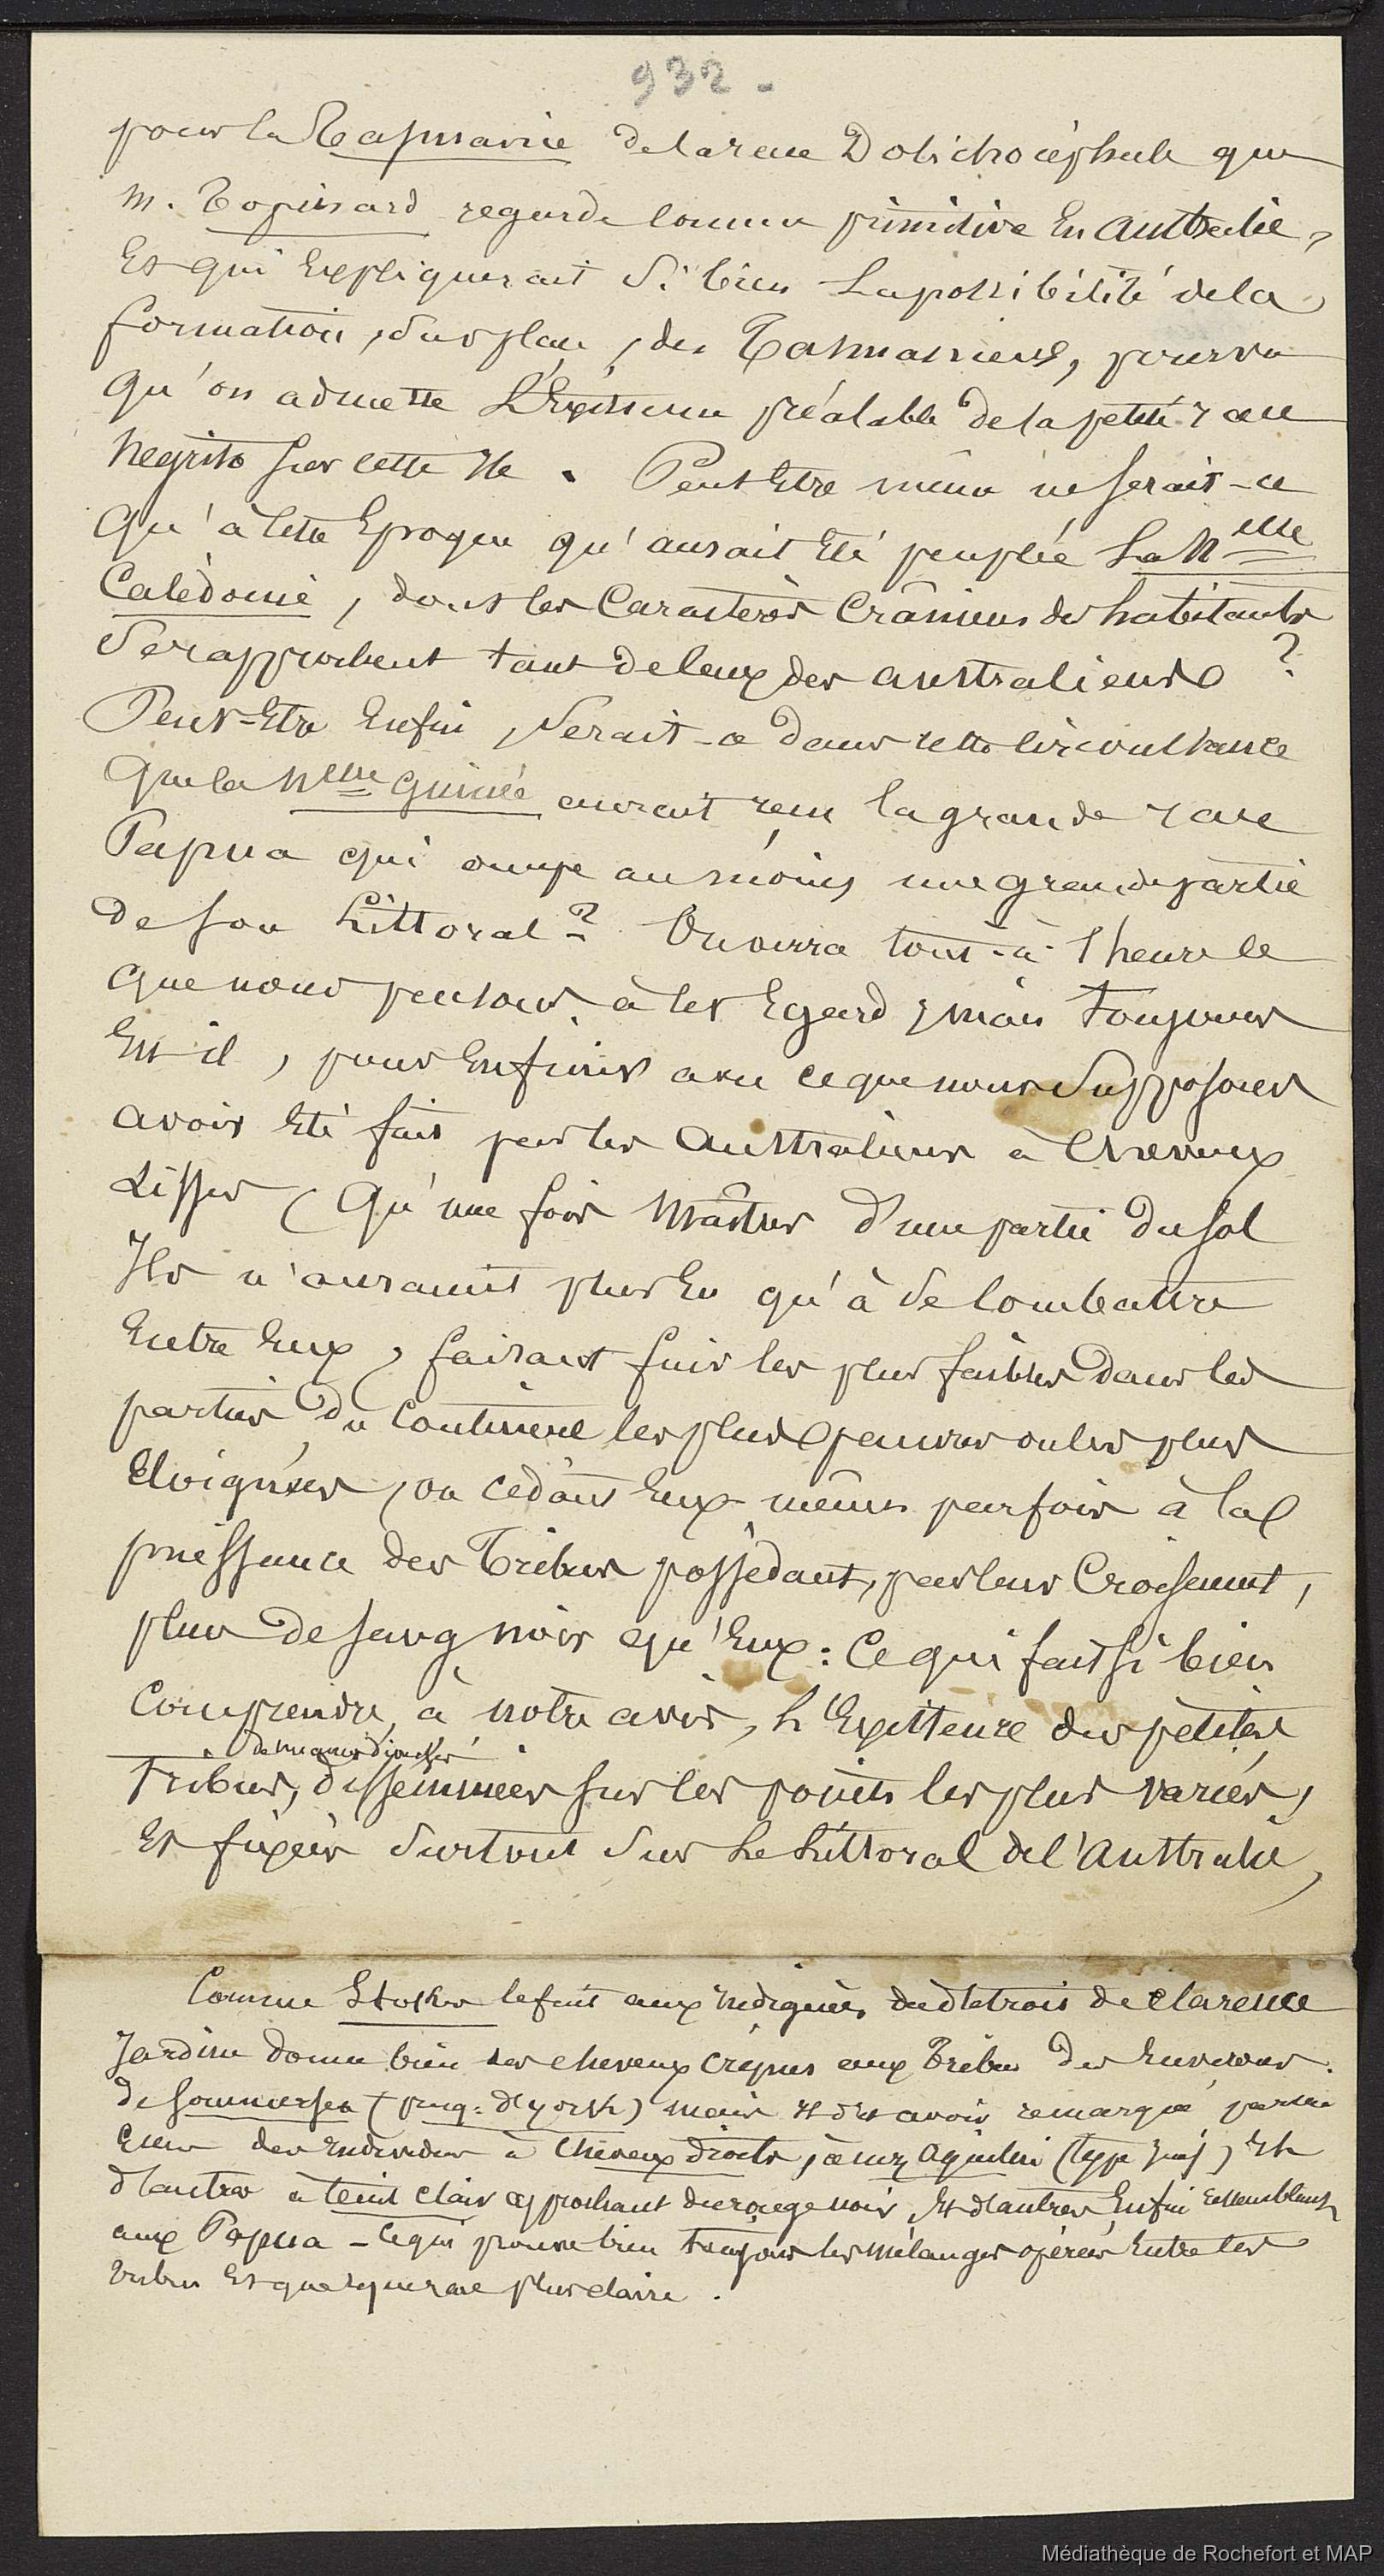 932 -
pour la Tasmanie de la race Dolichocéphale que
M. Topinard regarde comme primitive En Australie,
Et qui Expliquerait si bien La possibilité de la
formation, sur place, des Tasmaniens, pourvu
qu'on admette L'Existence préalable de la petite race
Negrito sur cette Ile. Peut Etre même ne serait-ce
qu'à cette Epoque qu'aurait Eté peuplée La Nelle
Calédonie, dont les Caractères Crâniens des habitants
se rapprochent tant de ceux des australiens ?
Peut-Etre Enfin, serait-ce dans cette circonstance
que la Nelle Guinée aurait reçu la grande race
Papua qui occupe au moins une grande partie
de son Littoral ? On verra tout-à-l'heure ce
que nous pensons à cet Egard ; mais toujours
Est-il, pour En finir avec ce que nous supposons
avoir Eté fait par les Australiens à Cheveux
Lisses (qu'une fois Maîtres d'une partie du sol
Ils n'auraient plus Eu qu'à se Combattre
Entre Eux, faisant fuir les plus faibles dans les
parties du Continent les plus pauvres ou les plus
Eloignées, ou cédant Eux-mêmes parfois à la
puissance des Tribus possédant, par leur Croisement,
plus de sang noir qu'Eux : Ce qui fait si bien
Comprendre, à notre avis, L'Existence des petites
tribus, disséminées sur les points les plus variés,
Et fixées surtout sur Le Littoral de l'Australie,
Comme Stokes le fait aux indigènes du détroit de Clarence
Jardine donne bien des cheveux crépus aux Tribus des Environs
de Sommerset (presq: d'York) mais il dit avoir remarqué parmi
Eux des Individus à Cheveux droits, à nez Aquilin (type juif) Et
d'autres à teint clair approchant du rouge noir, Et d'autres Enfin ressemblant
aux Papua - Ce qui prouve bien toujours les mélanges opérés Entre les
tribus Et quelque race plus claire.
Médiathèque de Rochefort et MAP